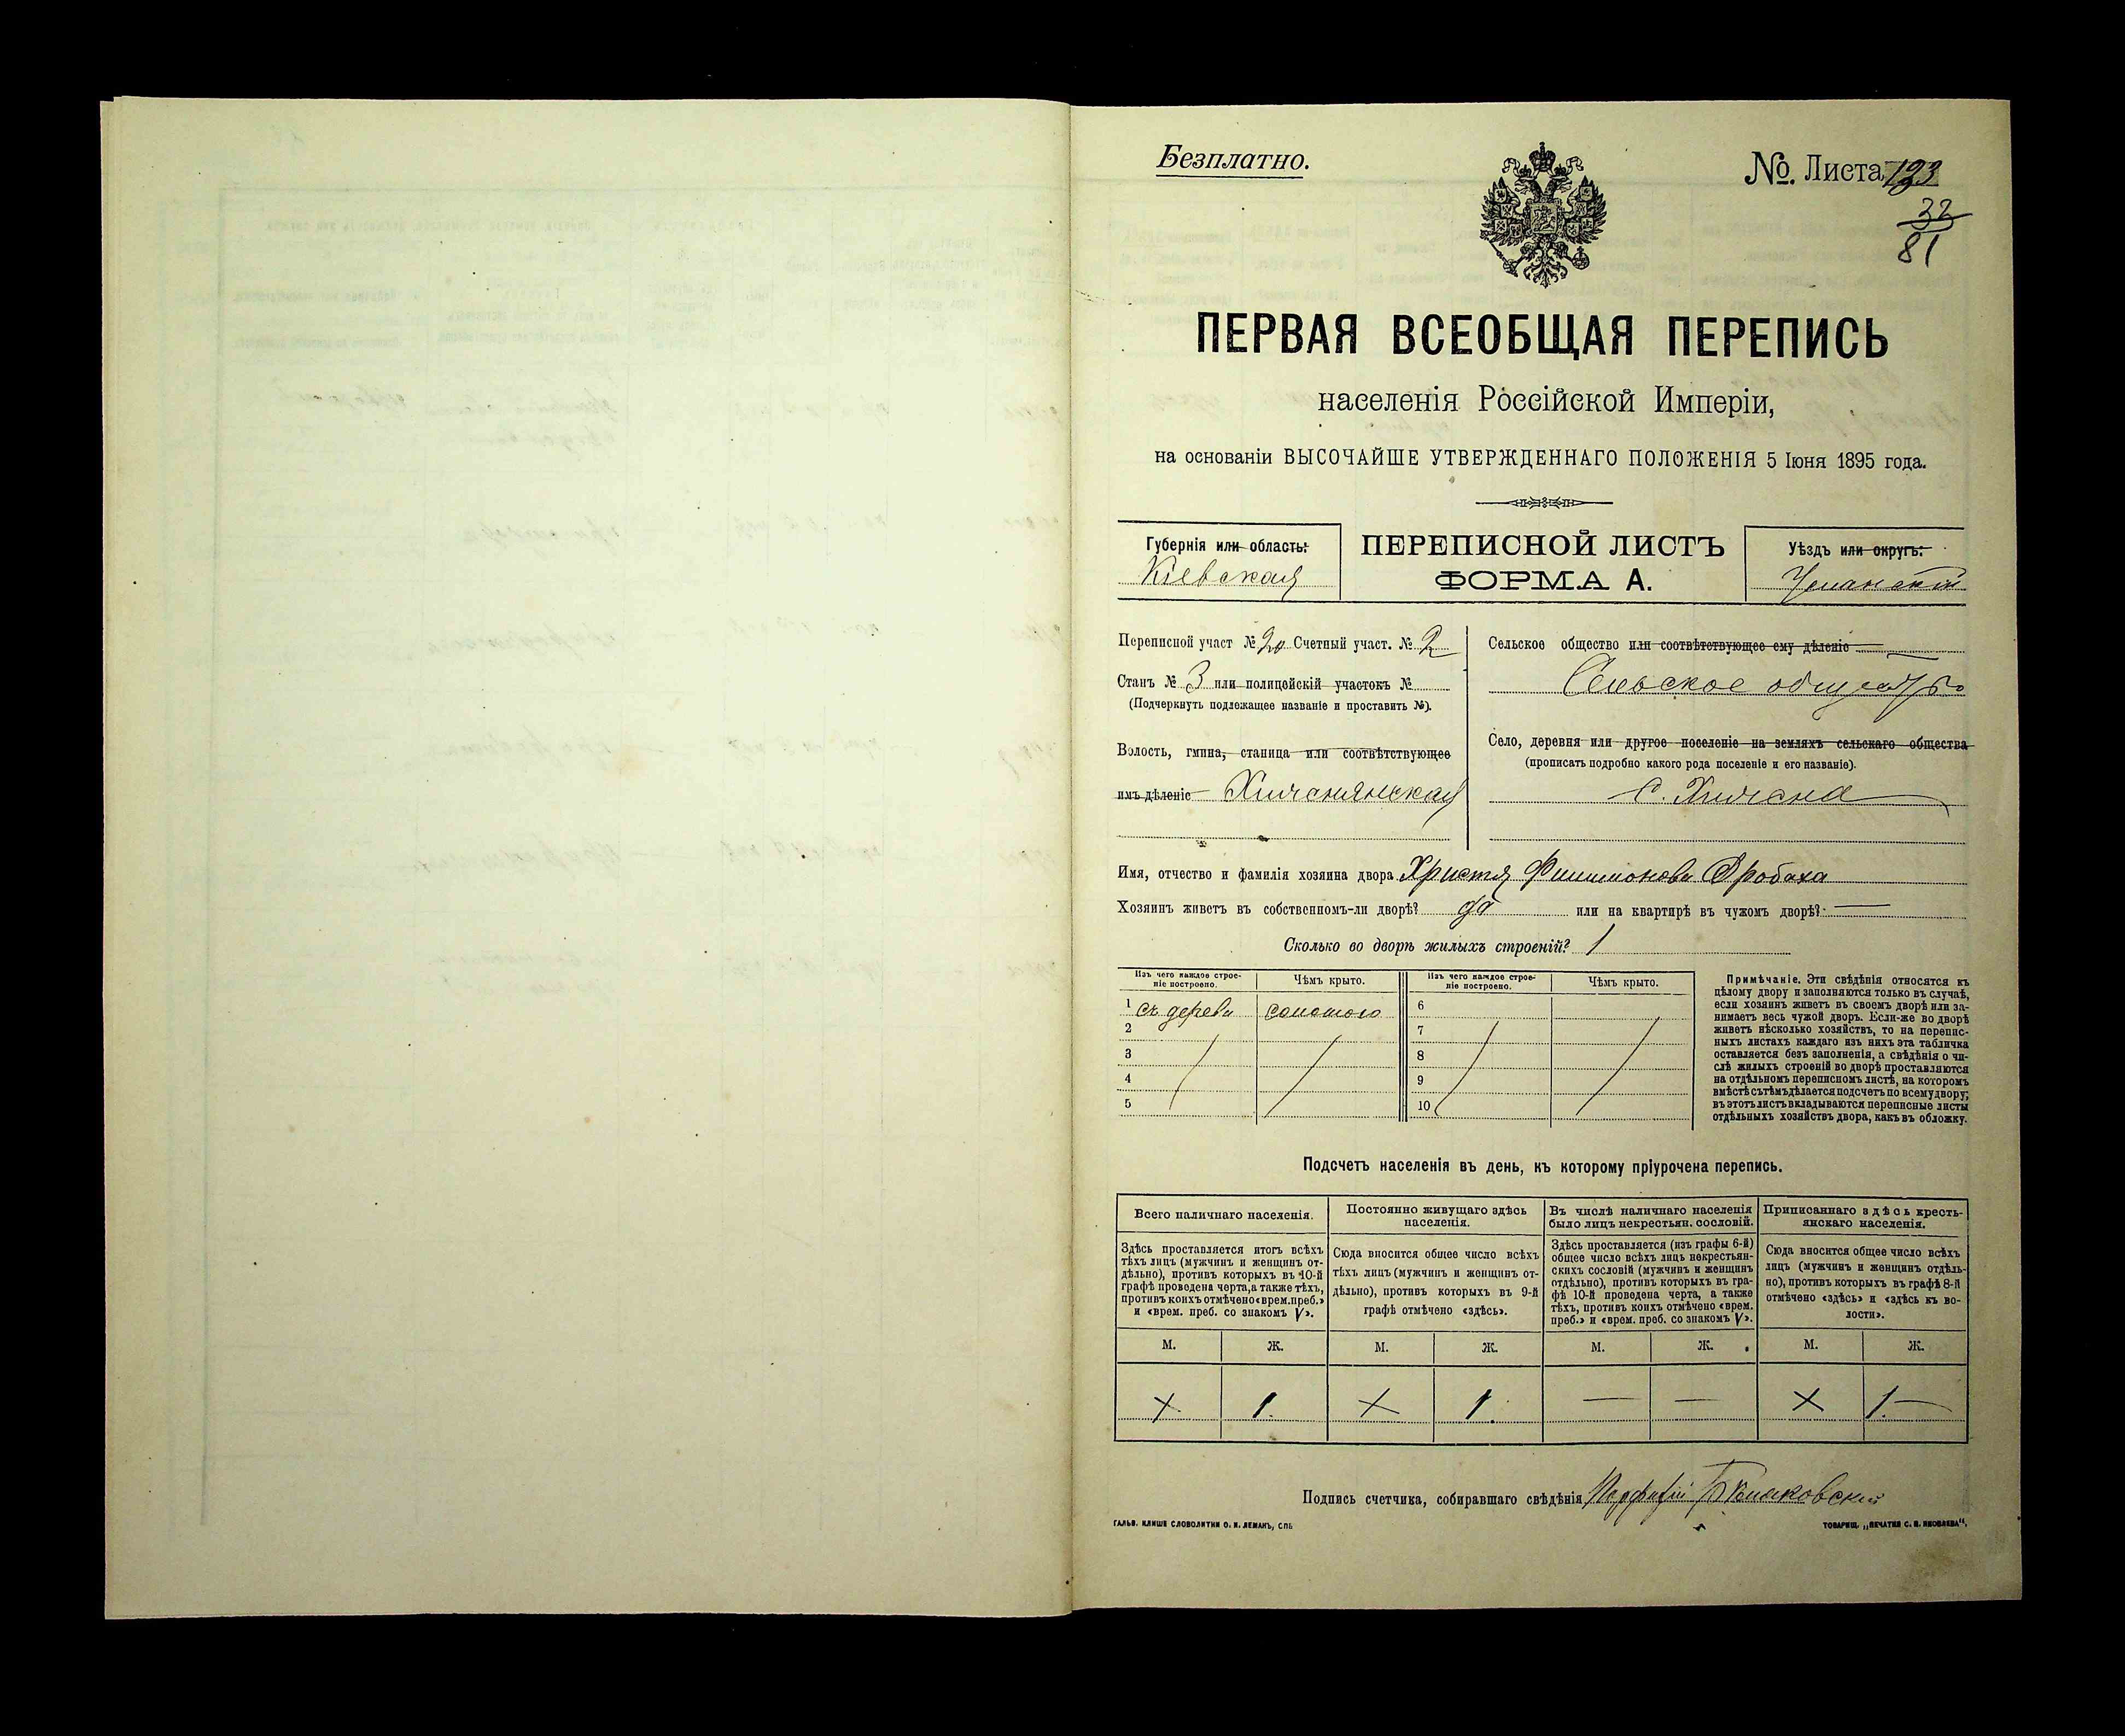 Безплатно.
№. Листа 123
32
81
ПЕРВАЯ ВСЕОБЩАЯ ПЕРЕПИСЬ
населенія Россійской Имперіи,
на основаніи ВЫСОЧАЙШЕ УТВЕРЖДЕННАГО ПОЛОЖЕНІЯ 5 Іюня 1895 года.
Губернія или область:
Кіевская
ПЕРЕПИСНОЙ ЛИСТЪ
ФОРМА А.
Уѣздъ или округъ:
Уманскій
Переписной участ № 20 Счетный участ. № 2
Станъ № 3 или полицейскій участокъ №
(Подчеркнуть подлежащее названіе и проставить №).
Волость, гмина, станица или соотвѣтствующее
имъ дѣленіе
Сельское общество или соотвѣтствующее ему дѣленіе
Сельское общество
Село, деревня или другое поселеніе на земляхъ сельскаго общества
(прописать подробно какого рода поселеніе и его названіе).
с.
Имя, отчество и фамилія хозяина двора Христя Филимонова Дробаха
Хозяинъ живетъ въ собственномъ-ли дворѣ? да или на квартирѣ въ чужомъ дворѣ? —
Сколько во дворѣ жилыхъ строеній? 1
Изъ чего каждое строе-
ніе построено.
Чѣмъ крыто.
Изъ чего каждое строе-
ніе построено.
Чѣмъ крыто.
1 съ дерева соломою 6
2 7
3 8
4 9
5 10
Примѣчаніе. Эти свѣдѣнія относятся къ
цѣлому двору и заполняются только въ случаѣ,
если хозяинъ живетъ въ своемъ дворѣ или за-
нимаетъ весь чужой дворъ. Если-же во дворѣ
живетъ нѣсколько хозяйствъ, то на перепис-
ныхъ листахъ каждаго изъ нихъ эта табличка
оставляется безъ заполненія, а свѣдѣнія о чи-
слѣ жилыхъ строеній во дворѣ проставляются
на отдѣльномъ переписномъ листѣ, на которомъ
вмѣстѣ съ тѣмъ дѣлается подсчетъ по всему двору;
въ этотъ листъ вкладываются переписные листы
отдѣльныхъ хозяйствъ двора, какъ въ обложку.
Подсчетъ населенія въ день, къ которому пріурочена перепись.
Всего наличнаго населенія.
Здѣсь проставляется итогъ всѣхъ
тѣхъ лицъ (мужчинъ и женщинъ от-
дѣльно), противъ которыхъ въ 10-й
графѣ проведена черта, а также тѣхъ,
противъ коихъ отмѣчено «врем. преб.»
и «врем. преб. со знакомъ V».
Постоянно живущаго здѣсь
населенія.
Сюда вносится общее число всѣхъ
тѣхъ лицъ (мужчинъ и женщинъ от-
дѣльно), противъ которыхъ въ 9-й
графѣ отмѣчено «здѣсь».
Въ числѣ наличнаго населенія
было лицъ некрестьян. сословій.
Здѣсь проставляется (изъ графы 6-й)
общее число всѣхъ лицъ некрестьян-
скихъ сословій (мужчинъ и женщинъ
отдѣльно), противъ которыхъ въ гра-
фѣ 10-й проведена черта, а также
тѣхъ, противъ коихъ отмѣчено «врем.
преб.» и «врем. преб. со знакомъ V».
Приписаннаго здѣсь кресть-
янскаго населенія.
Сюда вносится общее число всѣхъ
лицъ (мужчинъ и женщинъ отдѣль-
но), противъ которыхъ въ графѣ 8-й
отмѣчено «здѣсь» и «здѣсь къ во-
лости».
М. Ж. М. Ж. М. Ж. М. Ж.
× 1. × 1. — — × 1. —
Подпись счетчика, собиравшаго свѣдѣнія Порфирій
ГАЛЬВ. КЛИШЕ СЛОВОЛИТНИ О. И. ЛЕМАНЪ, СПБ
ТОВАРИЩ. „ПЕЧАТНЯ С. П. ЯКОВЛЕВА".